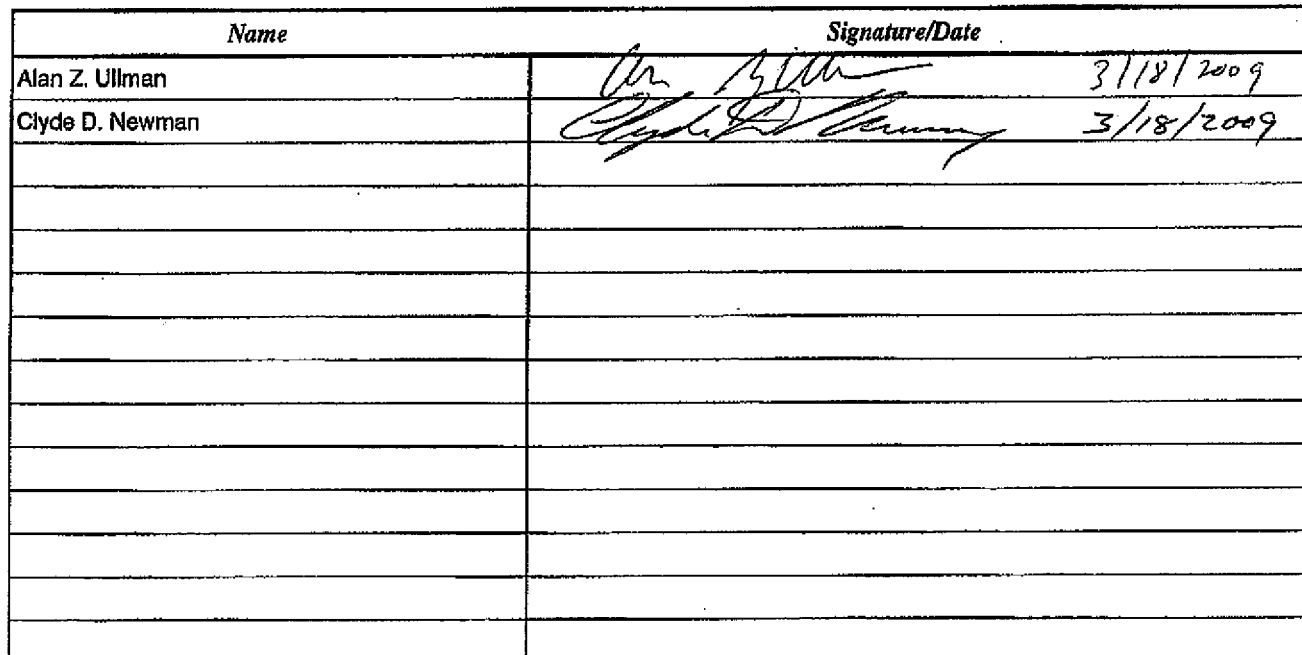 Name Signature/Date
Alan Z. Ullman 3/18/2009
Clyde D. Newman Clyde D Newman 3/18/2009